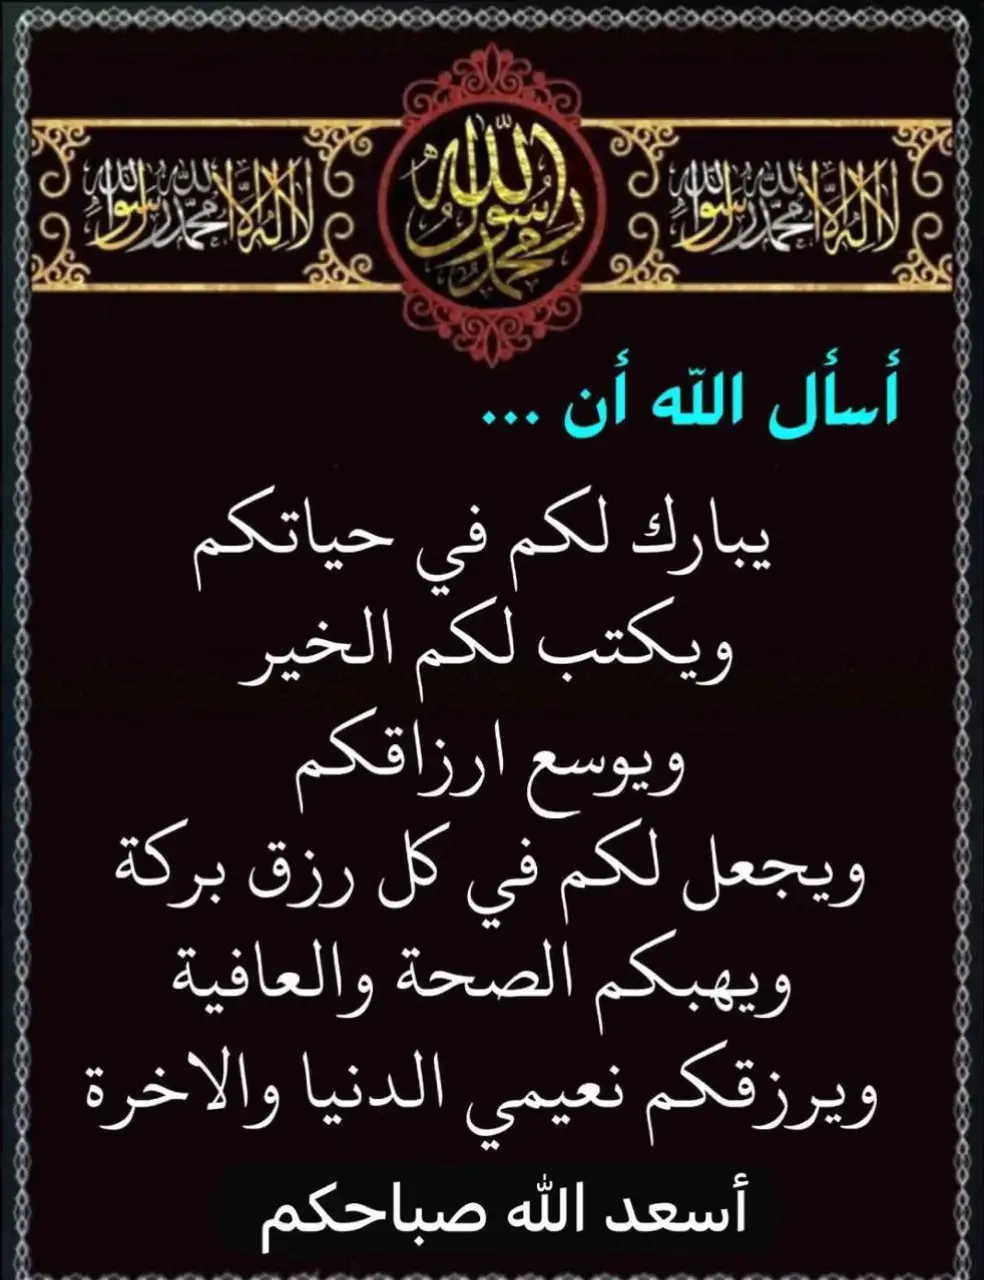 لا إله إلا الله محمد رسول الله
محمد رسول الله
لا إله إلا الله محمد رسول الله
أسأل الله أن ...
يبارك لكم في حياتكم
ويكتب لكم الخير
ويوسع ارزاقكم
ويجعل لكم في كل رزق بركة
ويهبكم الصحة والعافية
ويرزقكم نعيمي الدنيا والاخرة
أسعد الله صباحكم